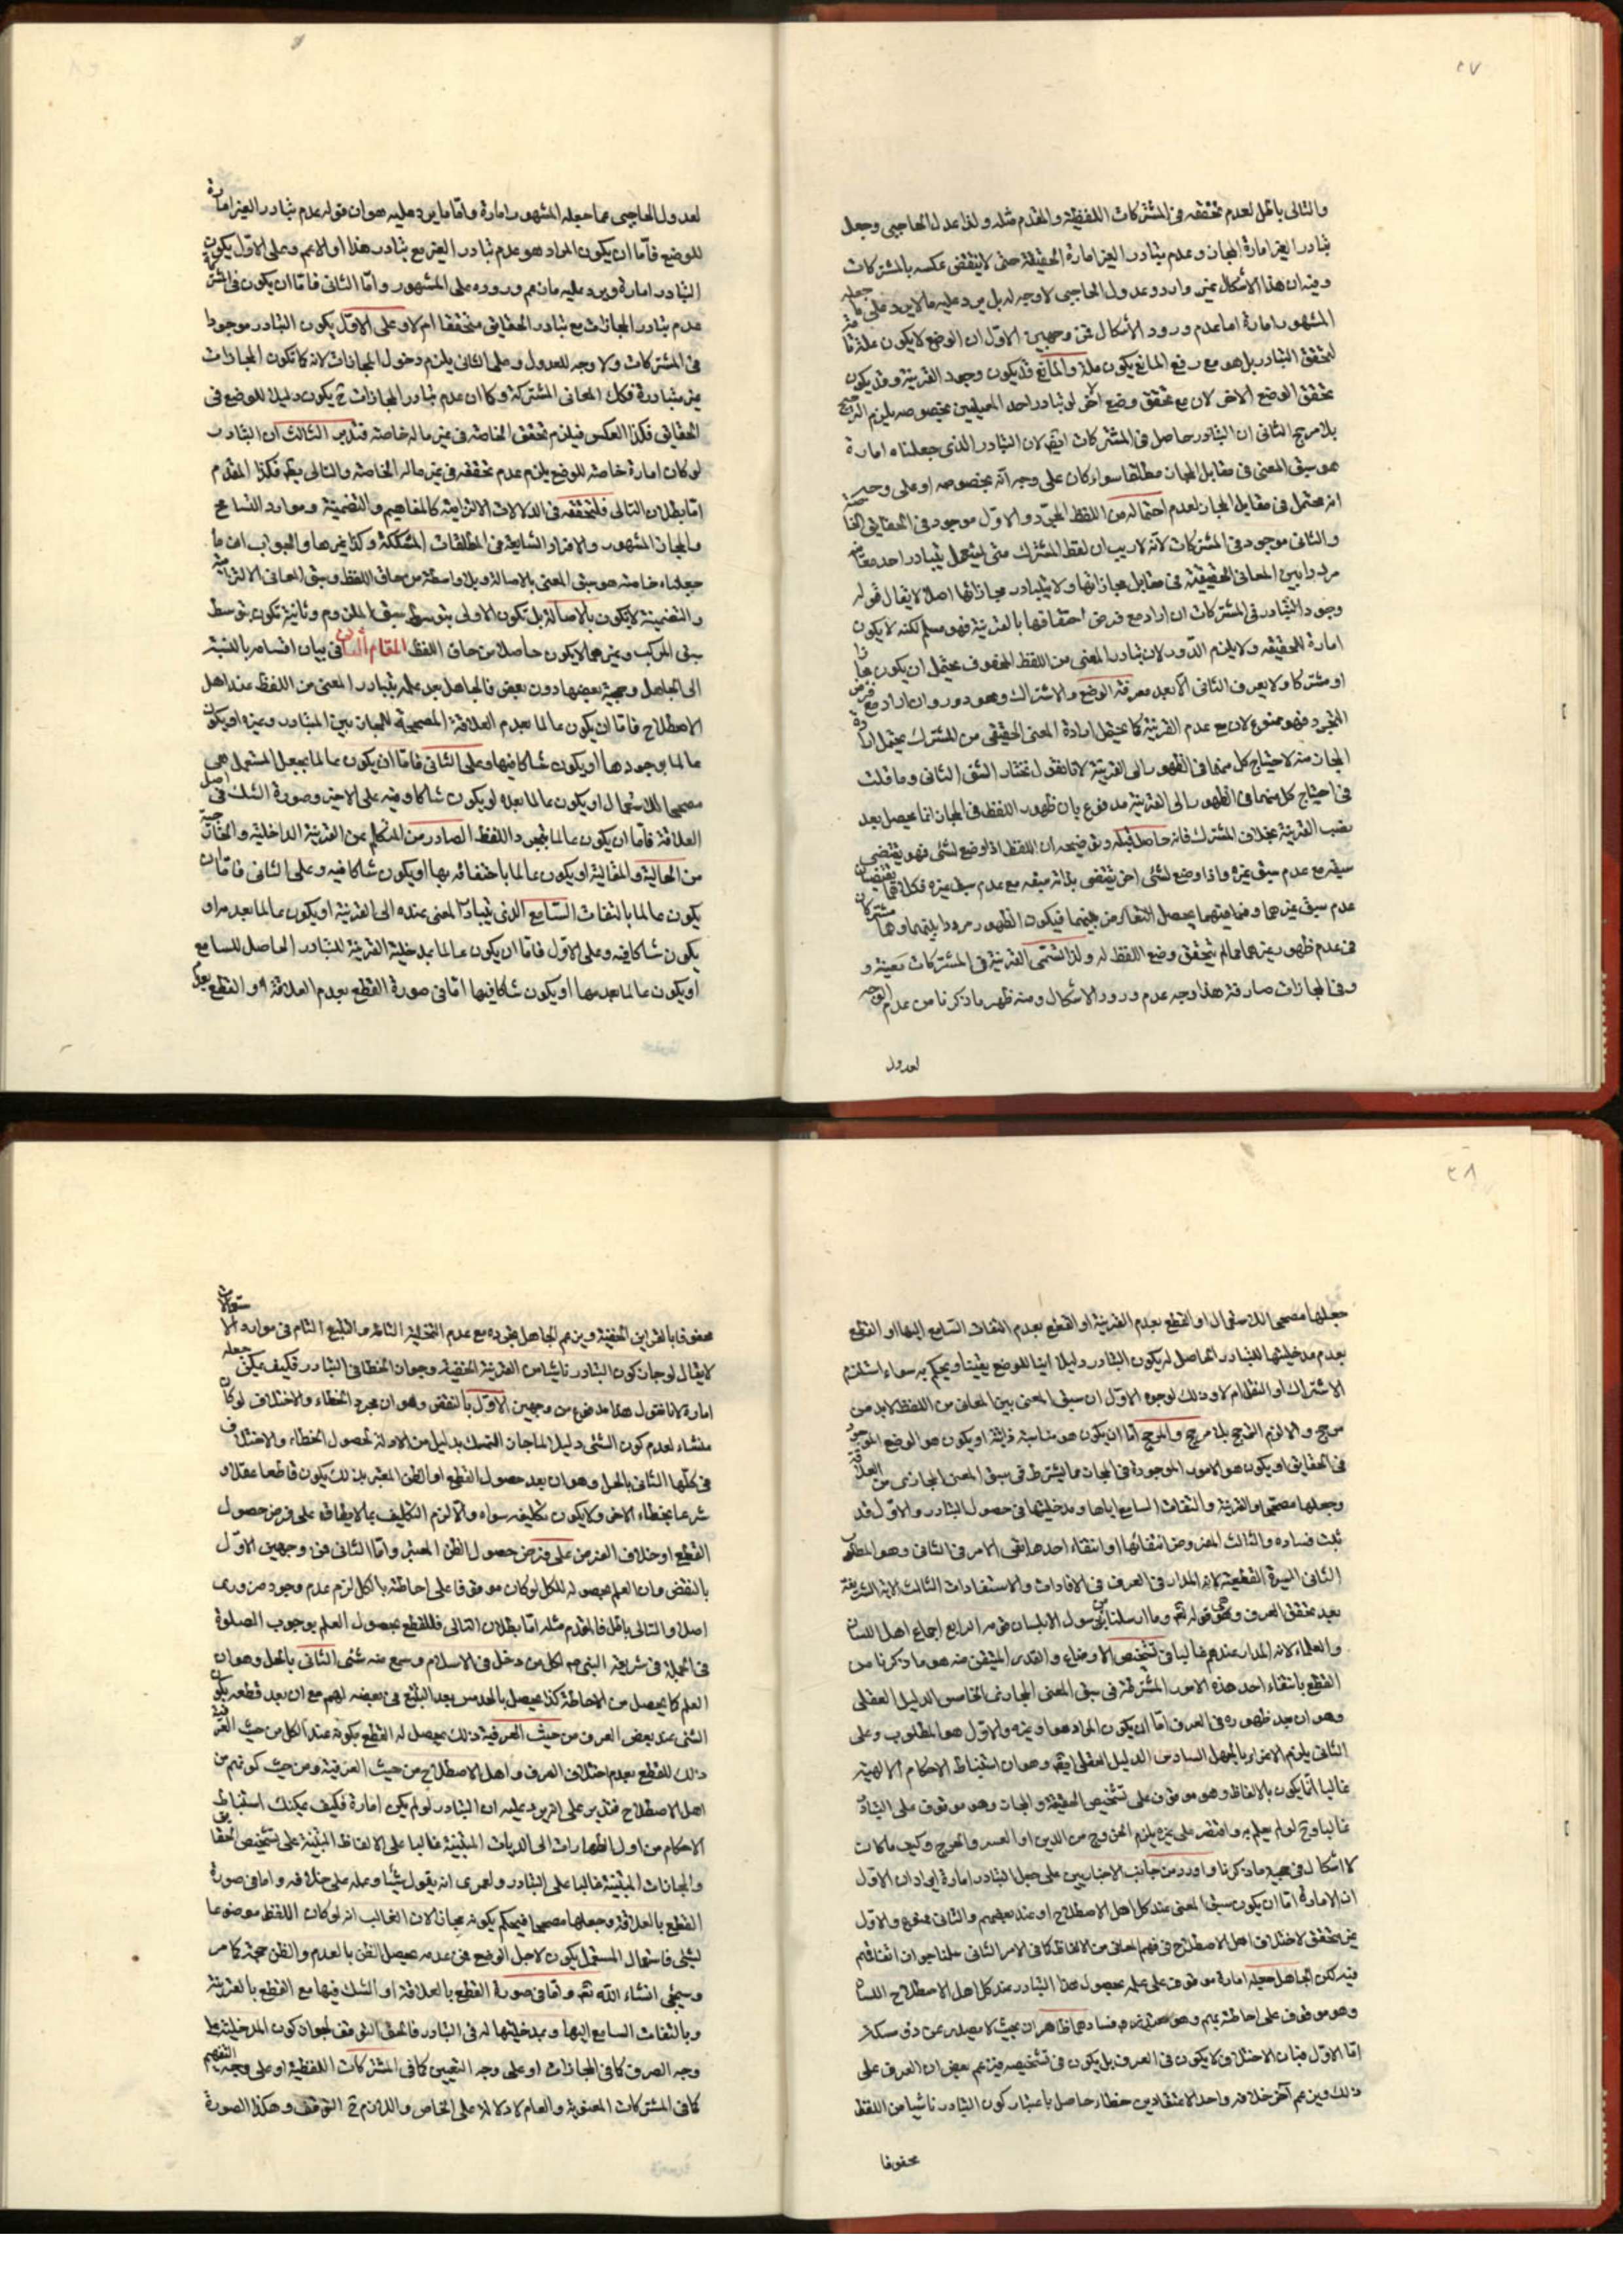 ٢٧
والتالى باطل لعدم تحققه فى المشتركات اللفظية والمقدم مثله ولذا عدل الحاجبى وجعل
تبادر الغير امارة المجاز وعدم تبادر الغير امارة الحقيقة حتى لا ينتقض عكسه بالمشتركات
وفيه ان هذا الأشكال غير وارد وعدول الحاجبى لا وجه له بل يرد عليه ما لا يرد على ما جعله
المشهور امارة اما عدم ورود الأشكال فمن وجهين الاول ان الوضع لا يكون علة تامة
لتحقق التبادر بل هو مع رفع المانع يكون علة والمانع قد يكون وجود القرينة وقد يكون
تحقق الوضع الاخر لان مع تحقق وضع آخر لو تبادر احد المعنيين بخصوصه يلزم الترجيح
بلا مرجح الثانى ان التبادر حاصل فى المشتركات ايضا لان التبادر الذى جعلناه امارة
هو سبق المعنى فى مقابل المجاز مطلقا سواء كان على وجه انه بخصوصه او على وجه
انه محتمل فى مقابل المجاز لعدم احتماله من اللفظ المجرد والاول موجود فى الحقائق الخاصة
والثانى موجود فى المشتركات لانه لا ريب ان لفظ المشترك متى استعمل يتبادر احد معانيه
مرددا بين المعانى الحقيقية فى مقابل مجازاتها ولا يتبادر مجازاتها اصلا لا يقال قوله
وجود التبادر فى المشتركات ان اراد مع فرض احتفافها بالقرينة فهو مسلم لكنه لا يكون
امارة للحقيقة ولا يلزم الدور لان تبادر المعنى من اللفظ المحفوف يحتمل ان يكون مجازا
او مشتركا ولا يعرف الثانى الا بعد معرفة الوضع والاشتراك وهو دور وان اراد مع فرض
التجرد فهو ممنوع لان مع عدم القرينة كما يحتمل ارادة المعنى الحقيقى من المشترك يحتمل ارادة
المجاز منه لاحتياج كل منهما فى الظهور الى القرينة لانا نقول نختار الشق الثانى وما قلت
فى احتياج كل منهما فى الظهور الى القرينة مدفوع بان ظهور اللفظ فى المجاز انما يحصل بعد
نصب القرينة بخلاف المشترك فانه حاصل قبله وتوضيحه ان اللفظ اذا وضع لشئ فهو يقتضى
سبقه مع عدم سبق غيره واذا وضع لشئ اخر يقتضى بذاته سبقه مع عدم سبق غيره فكلاهما يقتضيان
عدم سبق غيرهما وفى انفسهما يحصل التعارض بينهما فيكون الظهور مرددا بينهما وهما مشتركان
فى عدم ظهور غيرهما مما لم يتحقق وضع اللفظ له ولذا تسمى القرينة فى المشتركات معينة و
وفى المجازات صارفة هذا وجه عدم ورود الاشكال ومنه ظهر ما ذكرنا من عدم الوجه
لعدول
لعدول الحاجبى عما جعله المشهور امارة واما ما يرد عليه هو ان قوله عدم تبادر الغير امارة
للوضع فاما ان يكون المراد هو عدم تبادر الغير مع تبادر هذا او الاعم وعلى الاول يكون
التبادر امارة ويرد عليه ما زعم وروده على المشهور واما الثانى فاما ان يكون فى المشتركات
عدم تبادر المجازات مع تبادر الحقايق متحققا ام لا وعلى الاول يكون التبادر موجودا
فى المشتركات ولا وجه للعدول وعلى الثانى يلزم دخول المجازات لانه كما تكون المجازات
غير متبادرة فكذا المعانى المشتركة وكما ان عدم تبادر المجازات ح يكون دليلا للوضع فى
الحقايق فكذا العكس فيلزم تحقق الخاصة فى غير ما له خاصة فتدبر الثالث ان التبادر
لو كان امارة خاصة للوضع يلزم عدم تحققه فى غير ماله الخاصة والتالى بط فكذا المقدم
اما بطلان التالى فلتحققه فى الدلالات الالتزامية كالمفاهيم والتضمنية وموارد التسامح
والمجاز المشهور والافراد الشايعة فى المطلقات المشككة وكذا غيرها والجواب ان ما
جعلناه خاصة هو سبق المعنى بالاصالة وبلا واسطة من حاق اللفظ وسبق المعانى الالتزامية
والتضمنية لا يكون بالاصالة بل تكون الاولى بتوسط سبق الملزوم وثانية تكون بتوسط
سبق المركب وغيرهما لا يكون حاصلا من حاق اللفظ المقام الثانى فى بيان اقسامه بالنسبة
الى الجاهل وحجية بعضها دون بعض فالجاهل بعد علمه بتبادر المعنى من اللفظ عند اهل
الاصطلاح فاما ان يكون عالما بعدم العلاقة المصححة للمجاز بين المتبادر وغيره او يكون
عالما بوجودها او يكون شاكا فيها وعلى الثانى فاما ان يكون عالما بجعل المستعمل هى
مصححا للاستعمال او يكون عالما بعدمه او يكون شاكا وفيه على الاخير وصورة الشك فى اصل
العلاقة فاما ان يكون عالما بتجرد اللفظ الصادر من المتكلم عن القرينة الداخلية والخارجية
من الحالية والمقالية او يكون عالما باحتفافه بها او يكون شاكا فيه وعلى الثانى فاما ان
يكون عالما بالتفات السامع الذى يتبادر المعنى عنده الى القرينة او يكون عالما بعدمه او
يكون شاكا فيه وعلى الاول فاما ان يكون عالما بمدخلية القرينة للتبادر الحاصل للسامع
او يكون عالما بعدمها او يكون شاكا فيها اما فى صورة القطع بعدم العلاقة او القطع بعدم
٢٨
جعلها مصححا للاستعمال او القطع بعدم القرينة او القطع بعدم التفات السامع اليها او القطع
بعدم مدخليتها للتبادر الحاصل له يكون التبادر دليلا انيا للوضع يقينا ويحكم به سواء استلزم
الاشتراك او النقل ام لا وذلك لوجوه الاول ان سبق المعنى بين المعانى من اللفظ لابد من
مرجح والا لزم الترجيح بلا مرجح والمرجح اما ان يكون هو مناسبة ذاتية او يكون هو الوضع الموجود
فى الحقايق او يكون هو الامور الموجودة فى المجاز مما يشترط فى سبق المعنى المجازى من العلاقة
وجعلها مصححا والقرينة والتفات السامع اياها ومدخليتها فى حصول التبادر والاول قد
ثبت فساده والثالث المفروض انتفائها او انتفاء احدها بقى الامر فى الثانى وهو المطلوب
الثانى السيرة القطعية لانه المدار فى العرف فى الافادات والاستفادات الثالث الاية الشريفة
بعد تحقق العرف وهى قوله تع وما ارسلنا من رسول الا بلسان قومه الرابع اجماع اهل اللسان
والعلماء لانه المدار عندهم غالبا فى تشخيص الاوضاع والقدر المتيقن منه هو ما ذكرنا من
القطع بانتفاء احد هذه الامور المشترطة فى سبق المعنى المجازى الخامس الدليل العقلى
وهو ان بعد ظهوره فى العرف اما ان يكون المراد هو او غيره والاول هو المطلوب وعلى
الثانى يلزم الاغراء بالجهل السادس الدليل العقلى ايضا وهو ان استنباط الاحكام الالهية
غالبا انما يكون بالالفاظ وهو موقوف على تشخيص الحقيقة والمجاز وهو موقوف على التبادر
غالبا وح لو لم يعلم به واقتصر على غيره يلزم الخروج من الدين او العسر والحرج وكيف ما كان
لا اشكال فى حجية ما ذكرنا واورد من جانب الاخباريين على جعل التبادر امارة ايرادان الاول
ان الامارة اما ان يكون سبق المعنى عند كل اهل الاصطلاح او عند بعضهم والثانى ممنوع والاول
غير متحقق لاختلاف اهل الاصطلاح فى فهم المعانى من الالفاظ كما فى الامر الثانى سلمنا جواز اتفاقهم
فيه لكن الجاهل جعله امارة موقوف على علمه بحصول هذا التبادر عند كل اهل الاصطلاح اللسان
وهو موقوف على احاطته بهم وهى متعذرة وفسادهما ظاهر ان بحيث لا يصدر عن ذى مسكة
اما الاول فبان الاختلاف لا يكون فى العرف بل يكون فى تشخيصه فيزعم بعض ان العرف على
ذلك ويزعم آخر خلافه واحد الاعتقادين خطاء حاصل باعتبار كون التبادر ناشيا من اللفظ
محفوفا
محفوفا بالقراين الخفية ويزعم الجاهل تجرده مع عدم التخلية التامة والتتبع التام فى موارد الاستعمالات
لا يقال لو جاز كون التبادر ناشيا من القرينة الخفية وجواز الخطاء فى التبادر فكيف يمكن جعله
امارة لانا نقول هذا مدفوع من وجهين الاول بالنقض وهو ان مجرد الخطاء والاختلاف لو كان
منشاء لعدم كون الشئ دليلا لما جاز التمسك بدليل من الادلة لحصول الخطاء والاختلاف
فى كلها الثانى بالحل وهو ان بعد حصول القطع او الظن المعتبر بذلك يكون قاطعا عقلا و
شرعا بخطاء الاخر ولا يكون تكليفه سواه والا لزم التكليف بما لا يطاق على فرض حصول
القطع او خلاف الفرض على فرض حصول الظن المعتبر واما الثانى فمن وجهين الاول
بالنقض وان العلم بحصوله للكل لو كان موقوفا على احاطته بالكل لزم عدم وجود ضرورى
اصلا والتالى باطل فالمقدم مثله اما بطلان التالى فللقطع بحصول العلم بوجوب الصلوة
فى الجملة فى شريعة النبى ص لكل من دخل فى الاسلام وسمع منه شئ الثانى بالحل وهو ان
العلم كما يحصل من الاحاطة كذا يحصل بالحدس بعد التتبع فى بعضه لهم مع ان بعد قطعه بكون
الشئ عند بعض العرف من حيث العرفية ذلك يحصل له القطع بكونه عند الكل من حيث العرفية
ذلك للقطع بعدم اختلاف العرف واهل الاصطلاح من حيث العرفية ومن حيث كونهم من
اهل الاصطلاح فتدبر على انه يرد عليه ان التبادر لو لم يكن امارة فكيف يمكنك استنباط
الاحكام من اول الطهارات الى الديات المبتنية غالبا على الالفاظ المبتنية على تشخيص الحقايق
والمجازات المبتنية غالبا على التبادر ولعمرى انه يقول شيئا وعمله على خلافه واما فى صورة
القطع بالعلاقة وجعلها مصححا فيحكم بكونه مجازا لان الغالب انه لو كان اللفظ موضوعا
لشئ فاستعمال المستعمل يكون لاجل الوضع فمن عدمه يحصل الظن بالعدم والظن حجة كما مر
وسيجئ انشاء الله تع واما فى صورة القطع بالعلاقة او الشك فيها مع القطع بالقرينة
وبالتفات السامع اليها وبمدخليتها له فى التبادر فالحق التوقف لجواز كون المدخلية على
وجه الصرف كما فى المجازات او على وجه التعيين كما فى المشتركات اللفظية او على وجه التفهيم
كما فى المشتركات المعنوية والعام لا دلالة له على الخاص واللازم ح التوقف وهكذا الصورة